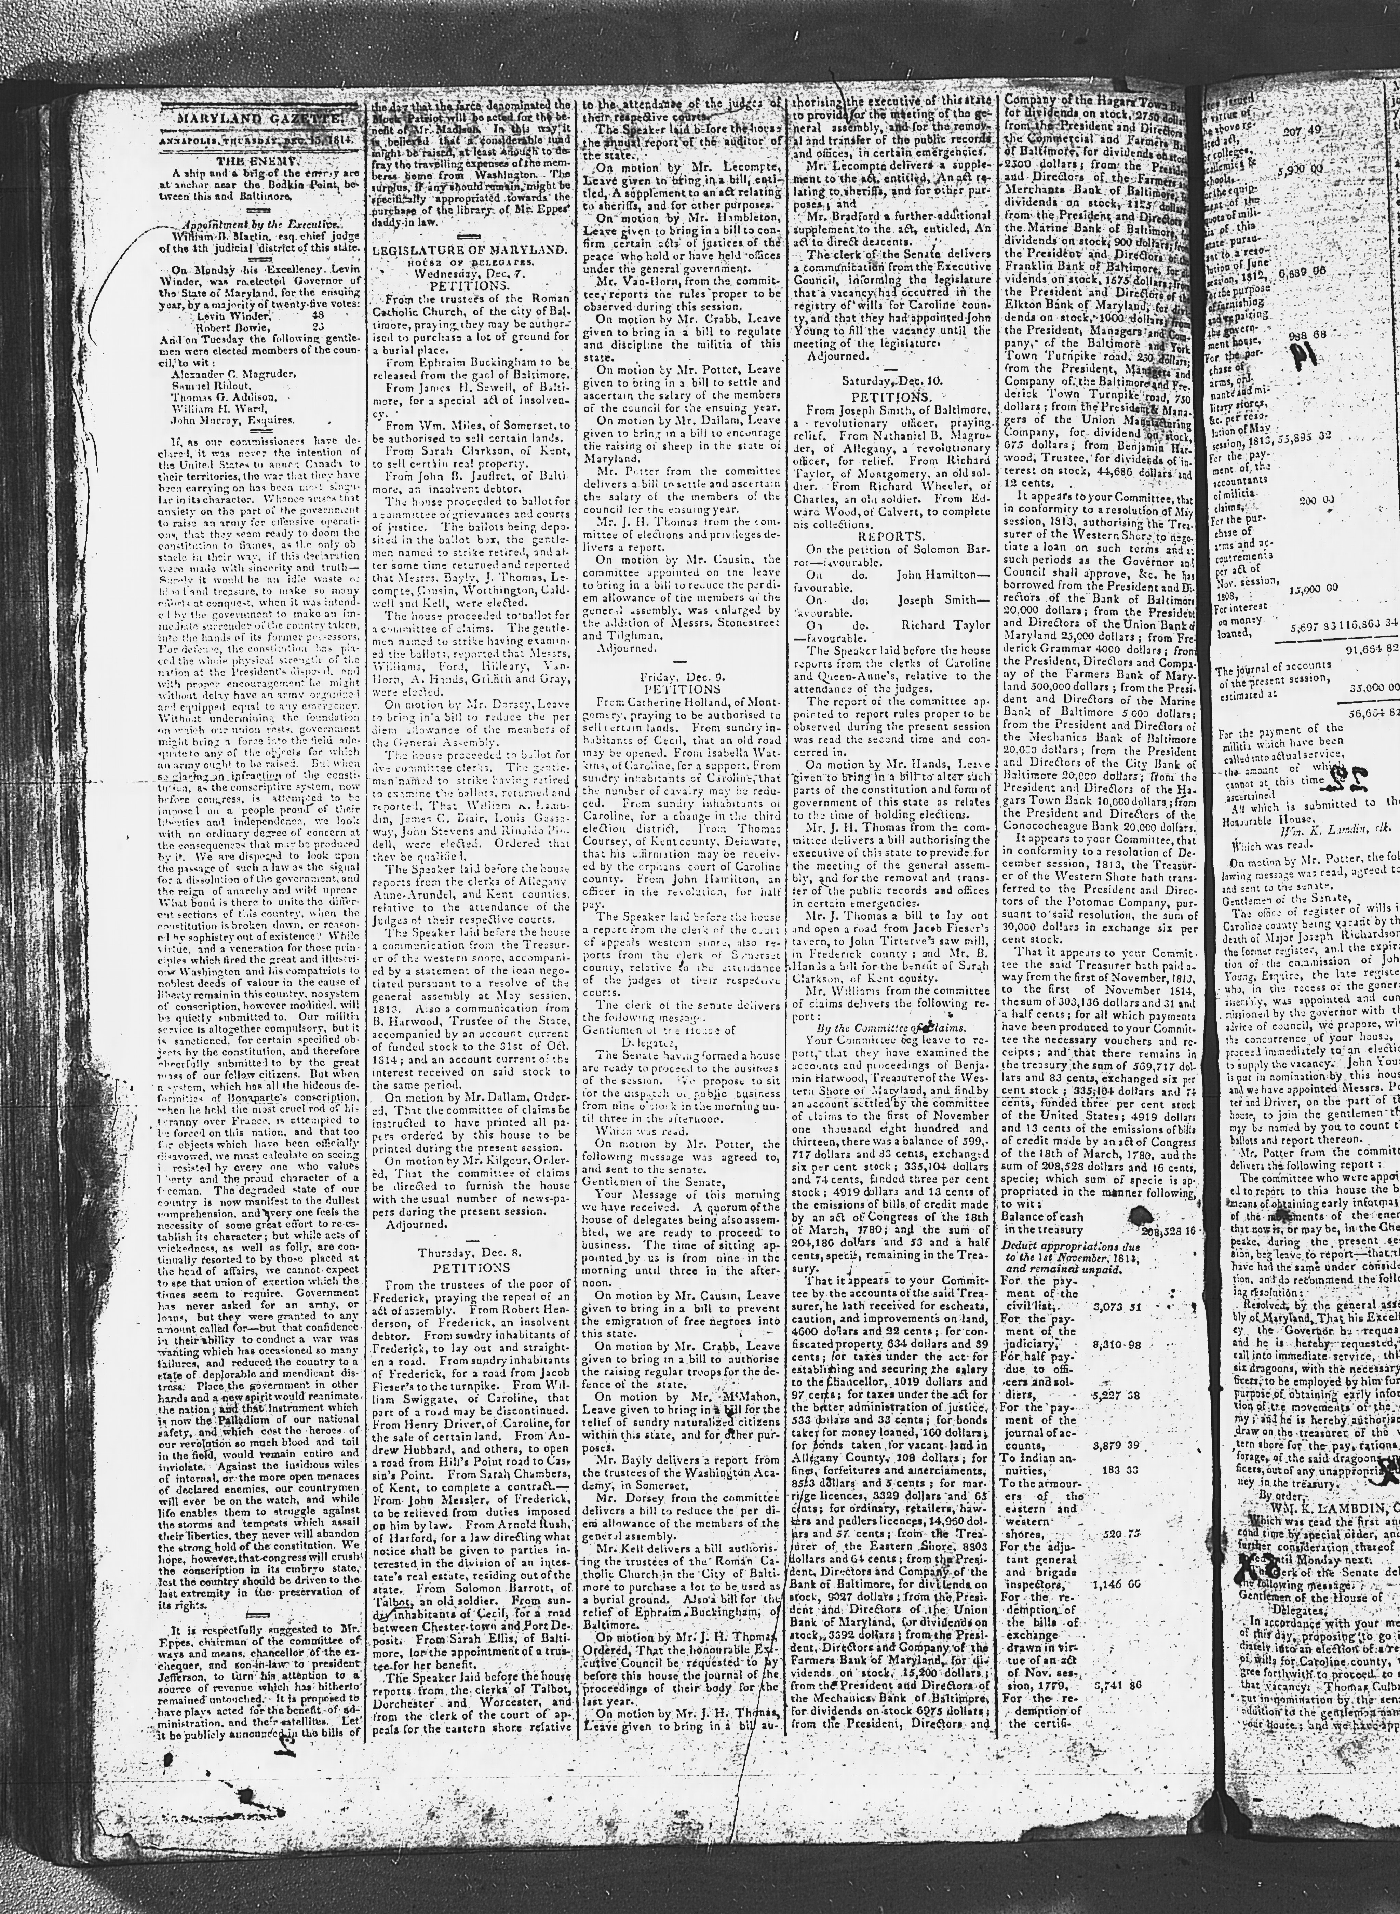 MARYLAND GAZETTE.
ANNAPOLIS, THURSDAY, DEC. 15, 1814.
THE ENEMY.
A ship and a brig of the enemy are
at anchor near the Bodkin Point, be-
tween this and Baltimore.
Appointment by the Executive.
William B. Martin, esq. chief judge
of the 4th judicial district of this state.
On Monday his Excellency Levin
Winder, was re-elected Governor of
the State of Maryland, for the ensuing
year, by a majority of twenty-five votes:
Levin Winder, 48
Robert Bowie, 23
And on Tuesday the following gentle-
men were elected members of the coun-
cil, to wit:
Alexander C. Magruder,
Samuel Ridout,
Thomas G. Addison,
William H. Ward,
John Murray, Esquires.
If, as our commissioners have de-
clared, it was never the intention of
the United States to annex Canada to
their territories, the war that they have
been carrying on has been most singu-
lar in its character. Whence arises that
anxiety on the part of the government
to raise an army for offensive operati-
ons, that they seem ready to doom the
constitution to flames, as the only ob-
stacle in their way, if this declaration
were made with sincerity and truth—
Surely it would be an idle waste of
blood and treasure, to make so many
efforts at conquest, when it was intend-
ed by the government to make an im-
mediate surrender of the country taken,
into the hands of its former possessors.
For defence, the constitution has pla-
ced the whole physical strength of the
nation at the President's disposal, and
with proper encouragement he might
without delay have an army organized
and equipped equal to any emergency.
Without undermining the foundation
on which our union rests, government
might bring a force into the field ade-
quate to any of the objects for which
an army ought to be raised. But when
so glaring an infraction of the consti-
tution, as the conscriptive system, now
before congress, is attempted to be
imposed on a people proud of their
liberties and independence, we look
with no ordinary degree of concern at
the consequences that may be produced
by it. We are disposed to look upon
the passage of such a law as the signal
for a dissolution of the government, and
the reign of anarchy and wild uproar.
What bond is there to unite the differ-
ent sections of this country, when the
constitution is broken down, or reason-
ed by sophistry out of existence? While
virtue, and a veneration for those prin-
ciples which fired the great and illustri-
ous Washington and his compatriots to
noblest deeds of valour in the cause of
liberty remain in this country, no system
of conscription, however modified, will
be quietly submitted to. Our militia
service is altogether compulsory, but it
is sanctioned, for certain specified ob-
jects by the constitution, and therefore
cheerfully submitted to by the great
mass of our fellow citizens. But when
a system, which has all the hideous de-
formities of Bonaparte's conscription,
when he held the most cruel rod of his
tyranny over France, is attempted to
be forced on this nation, and that too
for objects which have been officially
disavowed, we must calculate on seeing
it resisted by every one who values
liberty and the proud character of a
freeman. The degraded state of our
country is now manifest to the dullest
comprehension, and every one feels the
necessity of some great effort to re-es-
tablish its character; but while acts of
wickedness, as well as folly, are con-
tinually resorted to by those placed at
the head of affairs, we cannot expect
to see that union of exertion which the
times seem to require. Government
has never asked for an army, or
loans, but they were granted to any
amount called for—but that confidence
in their ability to conduct a war was
wanting which has occasioned so many
failures, and reduced the country to a
state of deplorable and mendicant dis-
tress. Place the government in other
hands and a new spirit would reanimate
the nation; and that instrument which
is now the Palladium of our national
safety, and which cost the heroes of
our revolution so much blood and toil
in the field, would remain entire and
inviolate. Against the insidious wiles
of internal, or the more open menaces
of declared enemies, our countrymen
will ever be on the watch, and while
life enables them to struggle against
the storms and tempests which assail
their liberties, they never will abandon
the strong hold of the constitution. We
hope, however, that congress will crush
the conscription in its embryo state,
lest the country should be driven to the
last extremity in the preservation of
its rights.
It is respectfully suggested to Mr.
Eppes, chairman of the committee of
ways and means, chancellor of the ex-
chequer, and son-in-law to president
Jefferson, to turn his attention to a
source of revenue which has hitherto
remained untouched. It is proposed to
have plays acted for the benefit of ad-
ministration, and their satellites. Let
it be publicly announced in the bills of
the day that the farce denominated the
Mock Patriot will be acted for the be-
nefit of Mr. Madison. In this way it
is believed that a considerable fund
might be raised, at least enough to de-
fray the travelling expenses of the mem-
bers home from Washington. The
surplus, if any should remain, might be
specifically appropriated towards the
purchase of the library of Mr. Eppes'
daddy in law.
LEGISLATURE OF MARYLAND.
HOUSE OF DELEGATES.
Wednesday, Dec. 7.
PETITIONS.
From the trustees of the Roman
Catholic Church, of the city of Bal-
timore, praying they may be author-
ised to purchase a lot of ground for
a burial place.
From Ephraim Buckingham to be
released from the gaol of Baltimore.
From James H. Sewell, of Balti-
more, for a special act of insolven-
cy.
From Wm. Miles, of Somerset, to
be authorised to sell certain lands.
From Sarah Clarkson, of Kent,
to sell certain real property.
From John B. Jauffret, of Balti-
more, an insolvent debtor.
The house proceeded to ballot for
a committee of grievances and courts
of justice. The ballots being depo-
sited in the ballot box, the gentle-
men named to strike retired, and af-
ter some time returned and reported
that Messrs. Bayly, J. Thomas, Le-
compte, Causin, Worthington, Cald-
well and Kell, were elected.
The house proceeded to ballot for
a committee of claims. The gentle-
men named to strike having examin-
ed the ballots, reported that Messrs.
Williams, Ford, Hilleary, Van-
Horn, A. Hands, Griffith and Gray,
were elected.
On motion by Mr. Dorsey, Leave
to bring in a bill to reduce the per
diem allowance of the members of
the General Assembly.
The house proceeded to ballot for
five committee clerks. The gentle-
men named to strike having retired
to examine the ballots, returned and
reported, That William K. Lamb-
din, James C. Blair, Louis Gassa-
way, John Stevens and Rinaldo Pin-
dell, were elected. Ordered that
they be qualified.
The Speaker laid before the house
reports from the clerks of Allegany
Anne-Arundel, and Kent counties,
relative to the attendance of the
Judges of their respective courts.
The Speaker laid before the house
a communication from the Treasur-
er of the western shore, accompani-
ed by a statement of the loan nego-
tiated pursuant to a resolve of the
general assembly at May session,
1813. Also a communication from
B. Harwood, Trustee of the State,
accompanied by an account current
of funded stock to the 31st of Oct.
1814; and an account current of the
interest received on said stock to
the same period.
On motion by Mr. Dallam, Order-
ed, That the committee of claims be
instructed to have printed all pa-
pers ordered by this house to be
printed during the present session.
On motion by Mr. Kilgour, Order-
ed, That the committee of claims
be directed to furnish the house
with the usual number of news-pa-
pers during the present session.
Adjourned.
Thursday, Dec. 8.
PETITIONS
From the trustees of the poor of
Frederick, praying the repeal of an
act of assembly. From Robert Hen-
derson, of Frederick, an insolvent
debtor. From sundry inhabitants of
Frederick, to lay out and straight-
en a road. From sundry inhabitants
of Frederick, for a road from Jacob
Fieser's to the turnpike. From Wil-
liam Swiggate, of Caroline, that
part of a road may be discontinued.
From Henry Driver, of Caroline, for
the sale of certain land. From An-
drew Hubbard, and others, to open
a road from Hill's Point road to Cas-
sin's Point. From Sarah Chambers,
of Kent, to complete a contract.—
From John Messler, of Frederick,
to be relieved from duties imposed
on him by law. From Arnold Rush,
of Harford, for a law directing what
notice shall be given to parties in-
terested in the division of an intes-
tate's real estate, residing out of the
state. From Solomon Barrott, of
Talbot, an old soldier. From sun-
dry inhabitants of Cecil, for a road
between Chester-town and Port De-
posit. From Sarah Ellis, of Balti-
more, for the appointment of a trus-
tee for her benefit.
The Speaker laid before the house
reports from the clerks of Talbot,
Dorchester and Worcester, and
from the clerk of the court of ap-
peals for the eastern shore relative
to the attendance of the judges of
their respective courts.
The Speaker laid before the house
the annual report of the auditor of
the state.
On motion by Mr. Lecompte,
Leave given to bring in a bill, enti-
tled, A supplement to an act relating
to sheriffs, and for other purposes.
On motion by Mr. Hambleton,
Leave given to bring in a bill to con-
firm certain acts of justices of the
peace who hold or have held offices
under the general government.
Mr. Van-Horn, from the commit-
tee, reports the rules proper to be
observed during this session.
On motion by Mr. Crabb, Leave
given to bring in a bill to regulate
and discipline the militia of this
state.
On motion by Mr. Potter, Leave
given to bring in a bill to settle and
ascertain the salary of the members
of the council for the ensuing year.
On motion by Mr. Dallam, Leave
given to bring in a bill to encourage
the raising of sheep in the state of
Maryland.
Mr. Potter from the committee
delivers a bill to settle and ascertain
the salary of the members of the
council for the ensuing year.
Mr. J. H. Thomas from the com-
mittee of elections and privileges de-
livers a report.
On motion by Mr. Causin, the
committee appointed on the leave
to bring in a bill to reduce the per di-
em allowance of the members of the
general assembly, was enlarged by
the addition of Messrs. Stonestreet
and Tilghman.
Adjourned.
Friday, Dec. 9.
PETITIONS
From Catherine Holland, of Mont-
gomery, praying to be authorised to
sell certain lands. From sundry in-
habitants of Cecil, that an old road
may be opened. From Isabella Wat-
kins, of Caroline, for a support. From
sundry inhabitants of Caroline, that
the number of cavalry may be redu-
ced. From sundry inhabitants of
Caroline, for a change in the third
election district. From Thomas
Coursey, of Kent county, Delaware,
that his affirmation may be receiv-
ed by the orphans court of Caroline
county. From John Hamilton, an
officer in the revolution, for half
pay.
The Speaker laid before the house
a report from the clerk of the court
of appeals western shore, also re-
ports from the clerk of Somerset
county, relative to the attendance
of the judges of their respective
courts.
The clerk of the senate delivers
the following message.
Gentlemen of the House of
Delegates,
The Senate having formed a house
are ready to proceed to the business
of the session. We propose to sit
for the dispatch of public business
from nine o'clock in the morning un-
til three in the afternoon.
Which was read.
On motion by Mr. Potter, the
following message was agreed to,
and sent to the senate.
Gentlemen of the Senate,
Your Message of this morning
we have received. A quorum of the
house of delegates being also assem-
bled, we are ready to proceed to
business. The time of sitting ap-
pointed by us is from nine in the
morning until three in the after-
noon.
On motion by Mr. Causin, Leave
given to bring in a bill to prevent
the emigration of free negroes into
this state.
On motion by Mr. Crabb, Leave
given to bring in a bill to authorise
the raising regular troops for the de-
fence of the state.
On motion by Mr. M'Mahon,
Leave given to bring in a bill for the
relief of sundry naturalized citizens
within this state, and for other pur-
poses.
Mr. Bayly delivers a report from
the trustees of the Washington Aca-
demy, in Somerset.
Mr. Dorsey from the committee
delivers a bill to reduce the per di-
em allowance of the members of the
general assembly.
Mr. Kell delivers a bill authoris-
ing the trustees of the Roman Ca-
tholic Church in the City of Balti-
more to purchase a lot to be used as
a burial ground. Also a bill for the
relief of Ephraim Buckingham, of
Baltimore.
On motion by Mr. J. H. Thomas,
Ordered, That the honourable Exe-
cutive Council be requested to lay
before this house the journal of the
proceedings of their body for the
last year.
On motion by Mr. J. H. Thomas,
Leave given to bring in a bill au-
thorising the executive of this state
to provide for the meeting of the ge-
neral assembly, and for the remov-
al and transfer of the public records
and offices, in certain emergencies.
Mr. Lecompte delivers a supple-
ment to the act, entitled, An act re-
lating to sheriffs, and for other pur-
poses; and
Mr. Bradford a further additional
supplement to the act, entitled, An
act to direct descents.
The clerk of the Senate delivers
a communication from the Executive
Council, informing the legislature
that a vacancy had occurred in the
registry of wills for Caroline coun-
ty, and that they had appointed John
Young to fill the vacancy until the
meeting of the legislature.
Adjourned.
Saturday, Dec. 10.
PETITIONS.
From Joseph Smith, of Baltimore,
a revolutionary officer, praying
relief. From Nathaniel B. Magru-
der, of Allegany, a revolutionary
officer, for relief. From Richard
Taylor, of Montgomery, an old sol-
dier. From Richard Wheeler, of
Charles, an old soldier. From Ed-
ward Wood, of Calvert, to complete
his collections.
REPORTS.
On the petition of Solomon Bar-
rot—favourable.
On do. John Hamilton—
favourable.
On do. Joseph Smith—
favourable.
On do. Richard Taylor
—favourable.
The Speaker laid before the house
reports from the clerks of Caroline
and Queen-Anne's, relative to the
attendance of the judges.
The report of the committee ap-
pointed to report rules proper to be
observed during the present session
was read the second time and con-
curred in.
On motion by Mr. Hands, Leave
given to bring in a bill to alter such
parts of the constitution and form of
government of this state as relates
to the time of holding elections.
Mr. J. H. Thomas from the com-
mittee delivers a bill authorising the
executive of this state to provide for
the meeting of the general assem-
bly, and for the removal and trans-
fer of the public records and offices
in certain emergencies.
Mr. J. Thomas a bill to lay out
and open a road from Jacob Fieser's
tavern, to John Tirterve's saw mill,
in Frederick county; and Mr. B.
Hands a bill for the benefit of Sarah
Clarkson, of Kent county.
Mr. Williams from the committee
of claims delivers the following re-
port:
By the Committee of Claims.
Your Committee beg leave to re-
port, that they have examined the
accounts and proceedings of Benja-
min Harwood, Treasurer of the Wes-
tern Shore of Maryland, and find by
an account settled by the committee
of claims to the first of November
one thousand eight hundred and
thirteen, there was a balance of 599,-
717 dollars and 83 cents, exchanged
six per cent stock; 335,104 dollars
and 74 cents, funded three per cent
stock; 4919 dollars and 13 cents of
the emissions of bills of credit made
by an act of Congress of the 18th
of March, 1780; and the sum of
204,186 dollars and 53 and a half
cents, specie, remaining in the Trea-
sury.
That it appears to your Commit-
tee by the accounts of the said Trea-
surer, he hath received for escheats,
caution, and improvements on land,
4600 dollars and 22 cents; for con-
fiscated property 634 dollars and 39
cents; for taxes under the act for
establishing and securing the salary
to the Chancellor, 1019 dollars and
97 cents; for taxes under the act for
the better administration of justice,
533 dollars and 33 cents; for bonds
taken for money loaned, 160 dollars;
for bonds taken for vacant land in
Allegany County, 108 dollars; for
fines, forfeitures and amerciaments,
8523 dollars and 5 cents; for mar-
riage licences, 3329 dollars and 65
cents; for ordinary, retailers, haw-
kers and pedlers licences, 14,960 dol-
lars and 57 cents; from the Trea-
surer of the Eastern Shore, 8803
dollars and 64 cents; from the Presi-
dent, Directors and Company of the
Bank of Baltimore, for dividends on
stock, 9027 dollars; from the Presi-
dent and Directors of the Union
Bank of Maryland, for dividends on
stock, 3392 dollars; from the Presi-
dent, Directors and Company of the
Farmers Bank of Maryland, for di-
vidends on stock, 15,200 dollars;
from the President and Directors of
the Mechanics Bank of Baltimore,
for dividends on stock 6975 dollars;
from the President, Directors and
Company of the Hagars Town Bank
for dividends on stock, 2750 dollars
from the President and Directors of
the Commercial and Farmers Bank
of Baltimore, for dividends on stock
2500 dollars; from the President
and Directors of the Farmers &
Merchants Bank of Baltimore,
dividends on stock, 1125 dollars
from the President and Directors
the Marine Bank of Baltimore,
dividends on stock, 900 dollars; from
the President and Directors of the
Franklin Bank of Baltimore, for di-
vidends on stock, 1675 dollars; from
the President and Directors of the
Elkton Bank of Maryland, for divi-
dends on stock, 1000 dollars; from
the President, Managers and Com-
pany, of the Baltimore and York
Town Turnpike road, 250 dollars;
from the President, Managers and
Company of the Baltimore and Fre-
derick Town Turnpike road, 750
dollars; from the President & Mana-
gers of the Union Manufacturing
Company, for dividend on stock,
675 dollars; from Benjamin Har-
wood, Trustee, for dividends of in-
terest on stock, 44,686 dollars and
12 cents.
It appears to your Committee, that
in conformity to a resolution of May
session, 1813, authorising the Trea-
surer of the Western Shore to nego-
tiate a loan on such terms and at
such periods as the Governor and
Council shall approve, &c. he has
borrowed from the President and Di-
rectors of the Bank of Baltimore
20,000 dollars; from the President
and Directors of the Union Bank of
Maryland 25,000 dollars; from Fre-
derick Grammar 4000 dollars; from
the President, Directors and Compa-
ny of the Farmers Bank of Mary-
land 500,000 dollars; from the Presi-
dent and Directors of the Marine
Bank of Baltimore 5000 dollars;
from the President and Directors of
the Mechanics Bank of Baltimore
20,000 dollars; from the President
and Directors of the City Bank of
Baltimore 20,000 dollars; from the
President and Directors of the Ha-
gars Town Bank 10,000 dollars; from
the President and Directors of the
Conococheague Bank 20,000 dollars.
It appears to your Committee, that
in conformity to a resolution of De-
cember session, 1813, the Treasur-
er of the Western Shore hath trans-
ferred to the President and Direc-
tors of the Potomac Company, pur-
suant to said resolution, the sum of
30,000 dollars in exchange six per
cent stock.
That it appears to your Commit-
tee the said Treasurer hath paid a-
way from the first of November, 1813,
to the first of November 1814,
the sum of 303,136 dollars and 31 and
a half cents; for all which payments
have been produced to your Commit-
tee the necessary vouchers and re-
ceipts; and that there remains in
the treasury the sum of 569,717 dol-
lars and 83 cents, exchanged six per
cent stock; 335,104 dollars and 74
cents, funded three per cent stock
of the United States; 4919 dollars
and 13 cents of the emissions of bills
of credit made by an act of Congress
of the 18th of March, 1780, and the
sum of 208,528 dollars and 16 cents,
specie; which sum of specie is ap-
propriated in the manner following,
to wit:
Balance of cash
in the treasury 208,528 16
Deduct appropriations due
to the 1st November, 1814,
and remained unpaid.
For the pay-
ment of the
civil list, 3,073 51
For the pay-
ment of the
judiciary, 8,310 98
For half pay
due to offi-
cers and sol-
diers, 5,227 38
For the pay-
ment of the
journal of ac-
counts, 3,879 39
To Indian an-
nuities, 183 33
To the armour-
ers of the
eastern and
western
shores, 520 75
For the adju-
tant general
and brigade
inspectors, 1,146 66
For the re-
demption of
the bills of
exchange
drawn in vir-
tue of an act
of Nov. ses-
sion, 1779, 5,741 86
For the re-
demption of
the certifi-
cates issued
in virtue of
the above re-
cited act, 207 49
colleges,
schools, 5,900 00
the equip-
quota of mili-
tia of this
state pursu-
ant to a reso-
lution of June
session, 1812, 6,689 06
for the purpose
of furnishing
and repairing
the govern-
ment house, 998 68
For the pur-
chase of
arms, ord-
nance and mi-
litary stores,
&c. per reso-
lution of May
session, 1813, 55,895 32
For the pay-
ment of the
accountants
of militia
claims, 200 00
For the pur-
chase of
arms and ac-
coutrements
per act of
Nov. session,
1808, 15,000 00
For interest
on money
loaned, 5,697 83 116,863 34
91,664 82
The journal of accounts
of the present session,
estimated at 35,000 00
56,664 82
For the payment of the
militia which have been
called into actual service,
the amount of which
cannot at this time be
ascertained.
All which is submitted to the
Honourable House.
Wm. K. Lamdin, clk.
Which was read.
On motion by Mr. Potter, the fol-
lowing message was read, agreed to
and sent to the senate.
Gentlemen of the Senate,
The office of register of wills in
Caroline county being vacant by the
death of Major Joseph Richardson
the former register, and the expira-
tion of the commission of John
Young, Esquire, the late register
who, in the recess of the general
assembly, was appointed and com-
missioned by the governor with the
advice of council, we propose, with
the concurrence of your house,
proceed immediately to an election
to supply the vacancy. John Young
is put in nomination by this house
and we have appointed Messrs. Pot-
ter and Driver, on the part of this
house, to join the gentlemen that
may be named by you to count the
ballots and report thereon.
Mr. Potter from the committee
delivers the following report:
The committee who were appoint-
ed to report to this house the best
means of obtaining early information
of the movements of the enemy
that now is, or may be, in the Chesa-
peake, during the present ses-
sion, beg leave to report—that they
have had the same under considera-
tion, and do recommend the follow-
ing resolution:
Resolved, by the general assem-
bly of Maryland, That his Excellen-
cy the Governor be requested,
and he is hereby requested, to
call into immediate service, the
six dragoons, with the necessary of-
ficers, to be employed by him for the
purpose of obtaining early informa-
tion of the movements of the ene-
my; and he is hereby authorised to
draw on the treasurer of the wes-
tern shore for the pay, rations and
forage, of the said dragoons and of-
ficers, out of any unappropriated mo-
ney in the treasury.
By order,
WM. K. LAMBDIN, C
Which was read the first and se-
cond time by special order, and
further consideration thereof
until Monday next.
The clerk of the Senate delivers
the following message.
Gentlemen of the House of
Delegates,
In accordance with your message
of this day, proposing to go imme-
diately into an election of a register
of wills for Caroline county, we a-
gree forthwith to proceed to supply
that vacancy. Thomas Culbreth
put in nomination by the senate in
addition to the gentleman named by
your house; and we have appointed